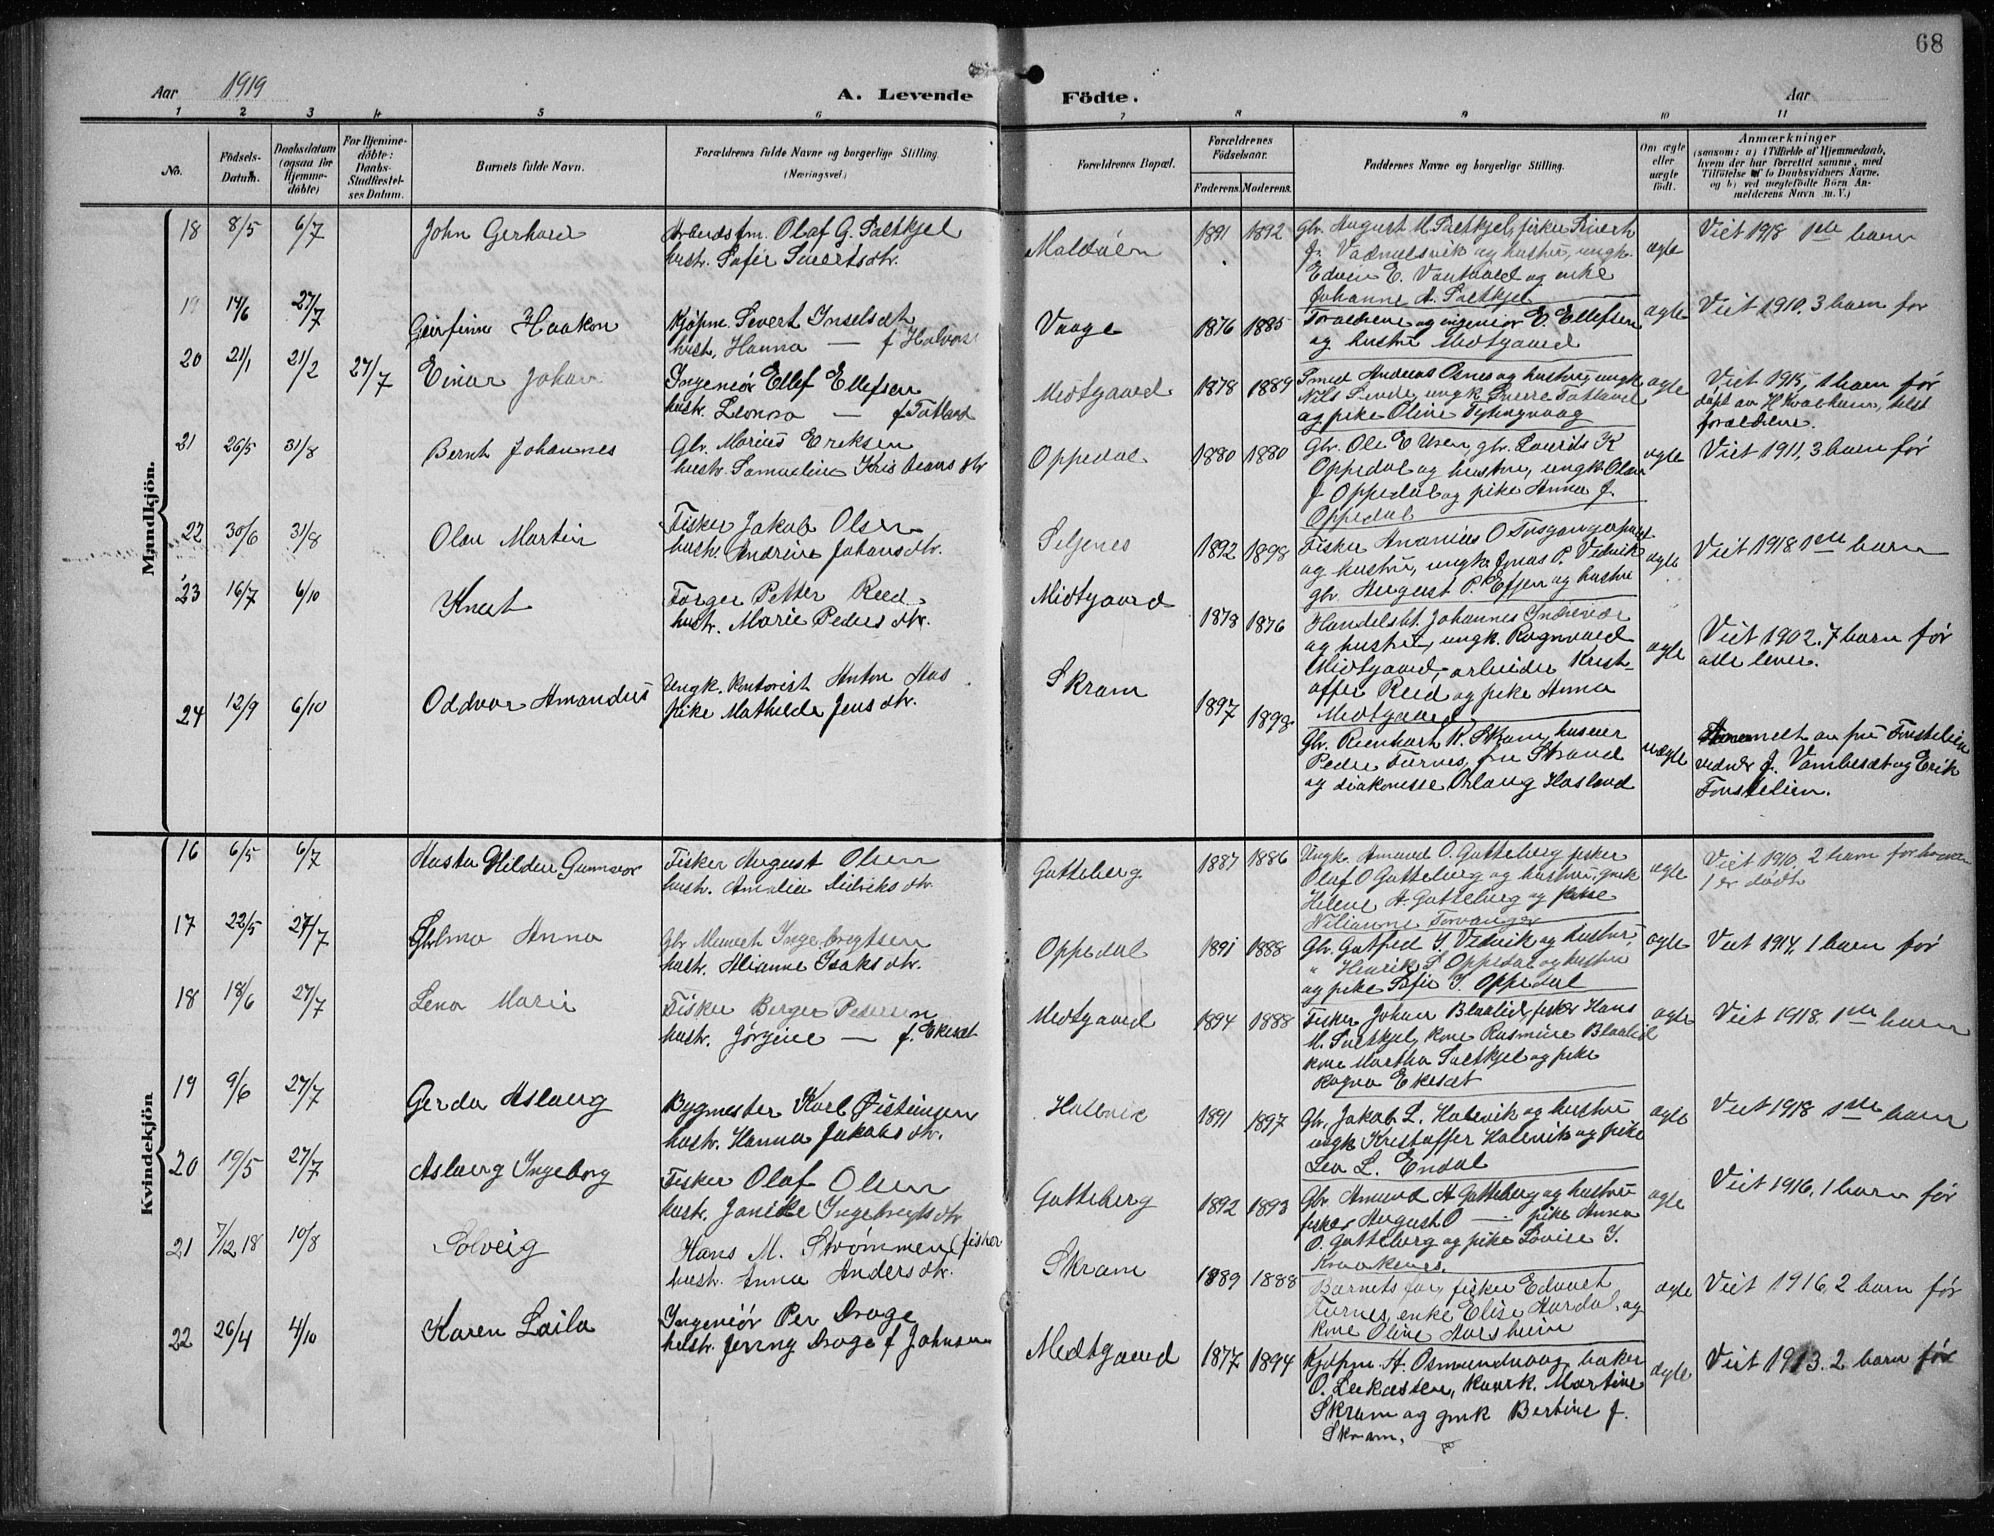 68
Aar 1919
A. Levende Födte.
Aar
1 2 3 4 5 6 7 8 9 10 11
No.
Födsels-Datum.
Daabsdatum (ogsaa for Hjemmedöbte)
For Hjemmedöbte: Daabs-Stadfæstelses Datum.
Barnets fulde Navn.
Forældrenes fulde Navne og borgerlige Stilling. (Næringsvei.)
Forældrenes Bopæl.
Forældrenes Födselsaar.
Faderens. Moderens.
Faddernes Navne og borgerlige Stilling.
Om ægte eller uægte født.
Anmærkninger
(saasom: a) i Tilfælde af Hjemmedaab,
hvem der har forrettet samme, med
Tilföielse af to Daabsvidners Navne,
og b) ved uægtefödte Börn An-
melderens Navn m. V.)
Mandkjön.
18 8/5 6/7 John Gerhard
Arbeidsfm. Olaf G. Saltkjel
hustr. Sofie Sivertsdtr.
Maldøen 1891 1892
Gbr. August M. Saltkjel, fisker Sivert
J. Vadmelsvik og hustru, ungk.
Edvin E. og enke
Johanne A. Saltkjel
ægte
Viet 1918 1ste barn
19 14/6 27/7 Geirfinn Haakon
Kjøpm. Severt Inselset
hust. Hanna — f. Halvors
Vaage 1876 1885
Forældrene og ingeniør E. Ellefsen
og hustru Midtgaard
ægte
Viet 1910, 3 barn før
20 21/1 21/2 27/7 Einar Johan
Ingeniør Ellef Ellefsen
hust. Leonna — f. Totland
Midtgaard 1878 1889
Smed Andreas Osnes og hustru, ungk
Nils Sevde, ungk. Sverre Totland
og pike Oline Tytingvaag
ægte
Viet 1915, 1 barn før
døpt av H Kvalheim, tilst
forældrene.
21 26/5 31/8 Bernt Johannes
Gbr. Marius Eriksen
hustr. Samueline Kristiansdtr
Oppedal 1880 1880
Gbr. Ole E Usen, gbr. Laurits K
Oppedal og hustru, ungk. Olav
J Oppedal og pike Anna J.
Oppedal
ægte
Viet 1911, 3 barn før
22 30/6 31/8 Olav Martin
Fisker Jakob Olsen
hustr. Andrine Johansdtr.
Seljenes 1892 1898
Fisker Ananias O
og hustru, ungk. Jonas P. Vedvik
gbr. August P. og hustru
ægte
Viet 1918 1ste barn
23 16/7 6/10 Knut
Farger Petter Reed
hustr. Marie Pedersdtr.
Midtgaard 1878 1876
Handelsbt. Johannes Indrevær
og hustru, ungk. Ragnvald
Midtgaard, arbeider Krist-
offer Reed og pike Anna
Midtgaard
ægte
Viet 1902, 7 barn før
alle lever.
24 12/9 6/10 Oddvar Amandus
Ungk. kontorist Anton Aas
pike Mathilde Jensdtr.
Skram 1897 1898
Gbr. Reinhart K. Skram, huseier
Peder Furnes, fru Strand
og diakonisse Aslaug Hasland
uægte
av fru
vidner J. Vambeset og Erik
Kvindekjön
16 6/5 6/7 Aasta Hildur Gunnvor
Fisker August Olsen
hustr. Amalia Didriksdtr.
Gotteberg 1887 1886
Ungk. Amund O. Gotteberg, fisker
Olaf O Gotteberg og hustru, gmk
Helene A. Gotteberg og pike
ægte
Viet 1910, 2 barn før hvorav
1 er dødt
17 22/5 27/7 Selma Anna
Gbr Ingebrigtsen
hustr. Alianne Isaksdtr.
Oppedal 1891 1888
Gbr. Gotfred I. Vedvik og hustru,
" Henrik S Oppedal og hustru
og pike Sofie I. Oppedal
ægte
Viet 1914, 1 barn før
18 18/6 27/7 Lena Marie
Fisker Berger Pedersen
hustr. Jørgine — f. Ekeset
Midtgaard 1894 1888
Fisker Johan Blaalid, fisker Hans
M. Saltkjel, kone Rasmine Blaalid
kone Martha Saltkjel og pike
Ragna Ekeset
ægte
Viet 1918. 1ste barn
19 9/6 27/7 Gerda Aslaug
Bygmester Karl Øistensen
hustr. Hanna Jakobsdtr.
Halsvik 1891 1897
Gbr. Jakob L. Halsvik og hustru
ungk Kristoffer Halsvik og pike
Lea L. Endal
ægte
Viet 1918 1ste barn
20 19/5 27/7 Aslaug Ingeborg
Fisker Olaf Olsen
hustr. Janikke Ingebrigtsdtr
Gotteberg 1892 1893
Gbr Amund A Gotteberg og hustru
fisker August O — pike Anna
O. Gotteberg og pike Lovise I.
Kraakenes.
ægte
Viet 1916, 1 barn før
21 7/12 18 10/8 Solveig
Hans M. Strømmen (fisker
hustr. Anna Andersdtr.
Skram 1889 1888
Barnets far, fisker Edvart
Furnes, enke Elise Hardal, og
kone Oline Aarsheim
ægte
Viet 1916, 2 barn før
22 26/4 4/10 Karen Laila
Ingeniør Per Drage
hustr. Jenny Drage f Johnsen
Midtgaard 1877 1894
Kjøpm. A. Osmundvaag, baker
O. Martine
Skram og gmk Bertine J.
Skram.
ægte
Viet 1913. 2 barn før